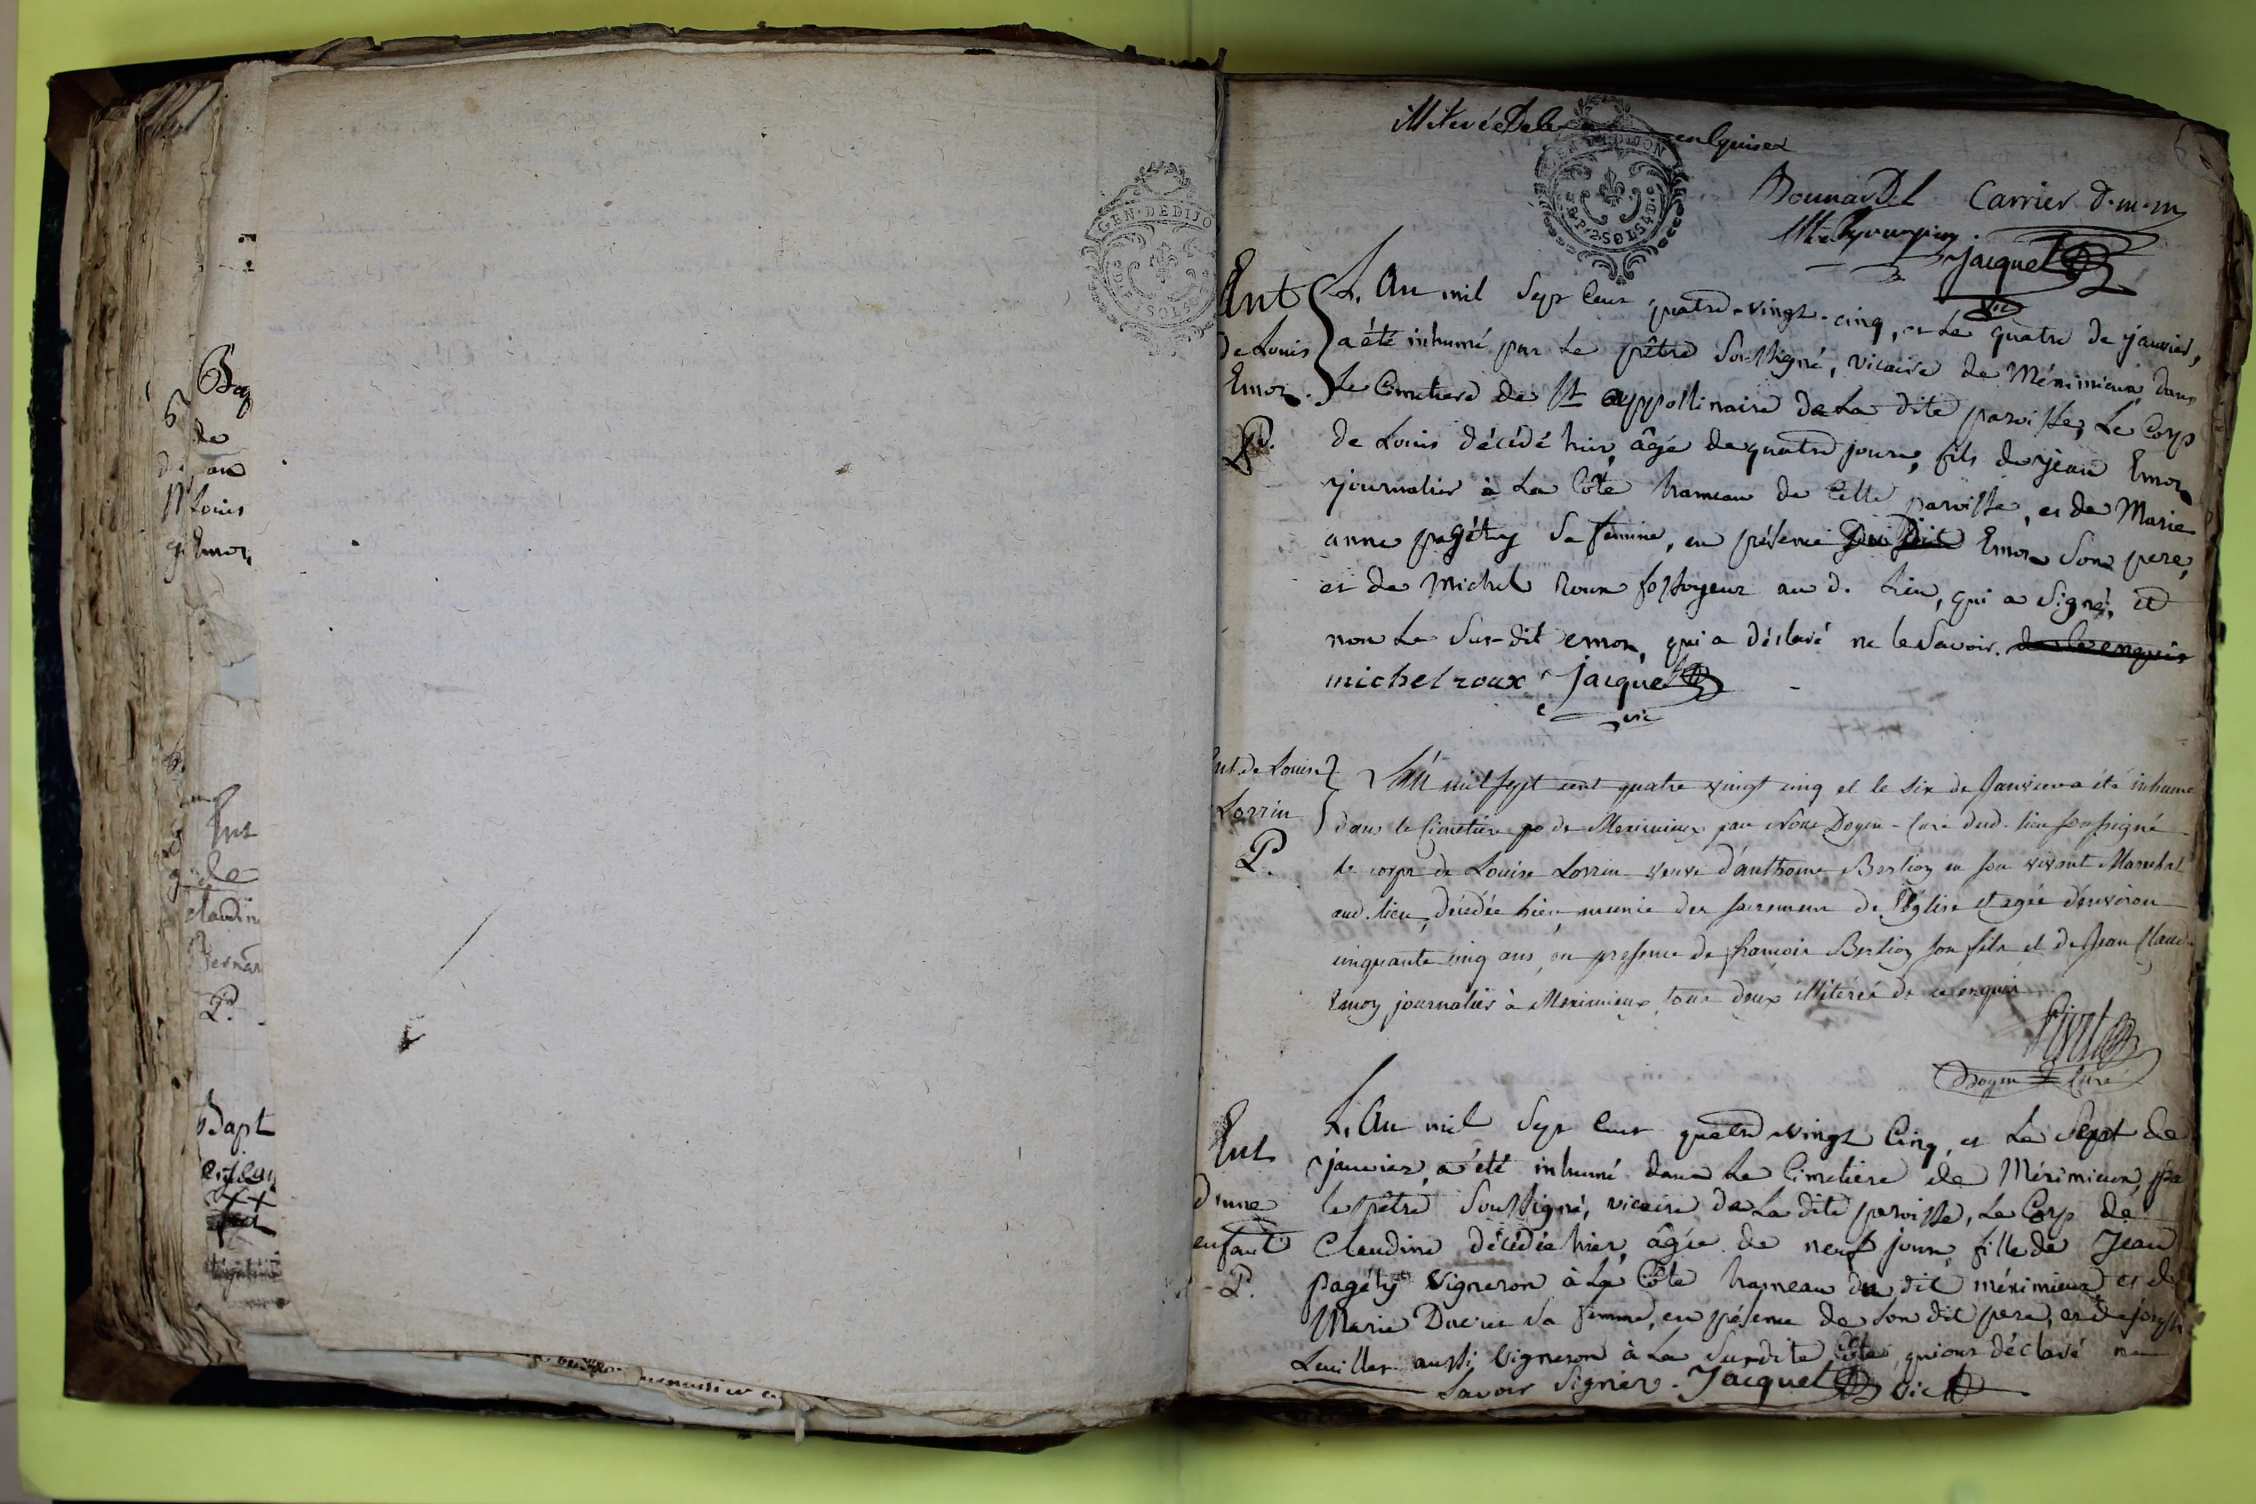 GEN·DEDIJO
Bap
de
Louis
Emoz
Ent
de
Claudine
Bernar
P.
Bapt
illiterés de le enquises
GEN DE DIJON
Bounardel Carrier d.m.m
Jacquet
vic
Ent
de Louis
Emoz.
P.
L'An mil sept cent quatre-vingt-cinq, et le quatre de janvier,
a été inhumé par le prêtre soussigné, vicaire de Méximieux, dans
le Cimetiere de St appollinaire de la dite paroisse, le Corps
de Louis décédé hier, âgé de quatre jours, fils de jean Emoz
journalier à la Côte hameau de cette paroisse, et de Marie
anne pagéty sa femme, en présence du dit Emoz son pere,
et de Michel Roux fossoyeur au d. lieu, qui a signé, et
non le sus-dit emoz, qui a déclaré ne le savoir. de le enquis
michel roux Jacquet
vic
Ent. de Louise
Lorrin
P.
L'an mil sept cent quatre vingt cinq et le six de Janvier a été inhumé
dans le Cimetière de Meximieux par Nous Doyen-Curé dud. lieu soussigné
le corps de Louise Lorrin veuve d'anthoine Berlioz en son vivant Marechal
aud. lieu, décédée hier, munie des sacremens de l'église et agée d'environ
cinquante cinq ans, en presence de françois Berlioz son fils et de Jean Claude
Emoz journalier à Meximieux, tous deux illiterés de ce enquis
Doyen Curé
Ent
d'une
enfant
P.
L'An mil sept cent quatre vingt Cinq, et le sept de
janvier, a été inhumé dans le Cimetière de Méximieux, par
le prêtre soussigné, vicaire de la dite paroisse, le Corp de
Claudine décédée hier, âgée de neuf jours, fille de Jean
pagéty vigneron à la Côte hameau du dit méximieux et de
Marie Ducret sa femme, en présence de son dit pere, et de joseph
Luillier aussi vigneron à la susdite Côte, qui ont déclaré ne
savoir signer. Jacquet vic